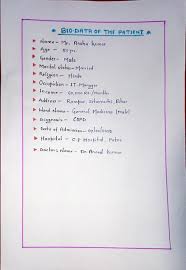 BIO-DATA OF THE PATIENT
Name - Mr. Anshu Kumar
Age - 50 yrs
Gender - Male
Marital status - Married
Religion - Hindu
Occupation - IT Manager
Income - 60,000 Rs/months
Address - Rampur, Bihar
Ward Name - General Medicine (male)
Diagnosis - COPD
Date of Admission -
Hospital - Hospital, Patna
Doctors Name - Dr. Kumar